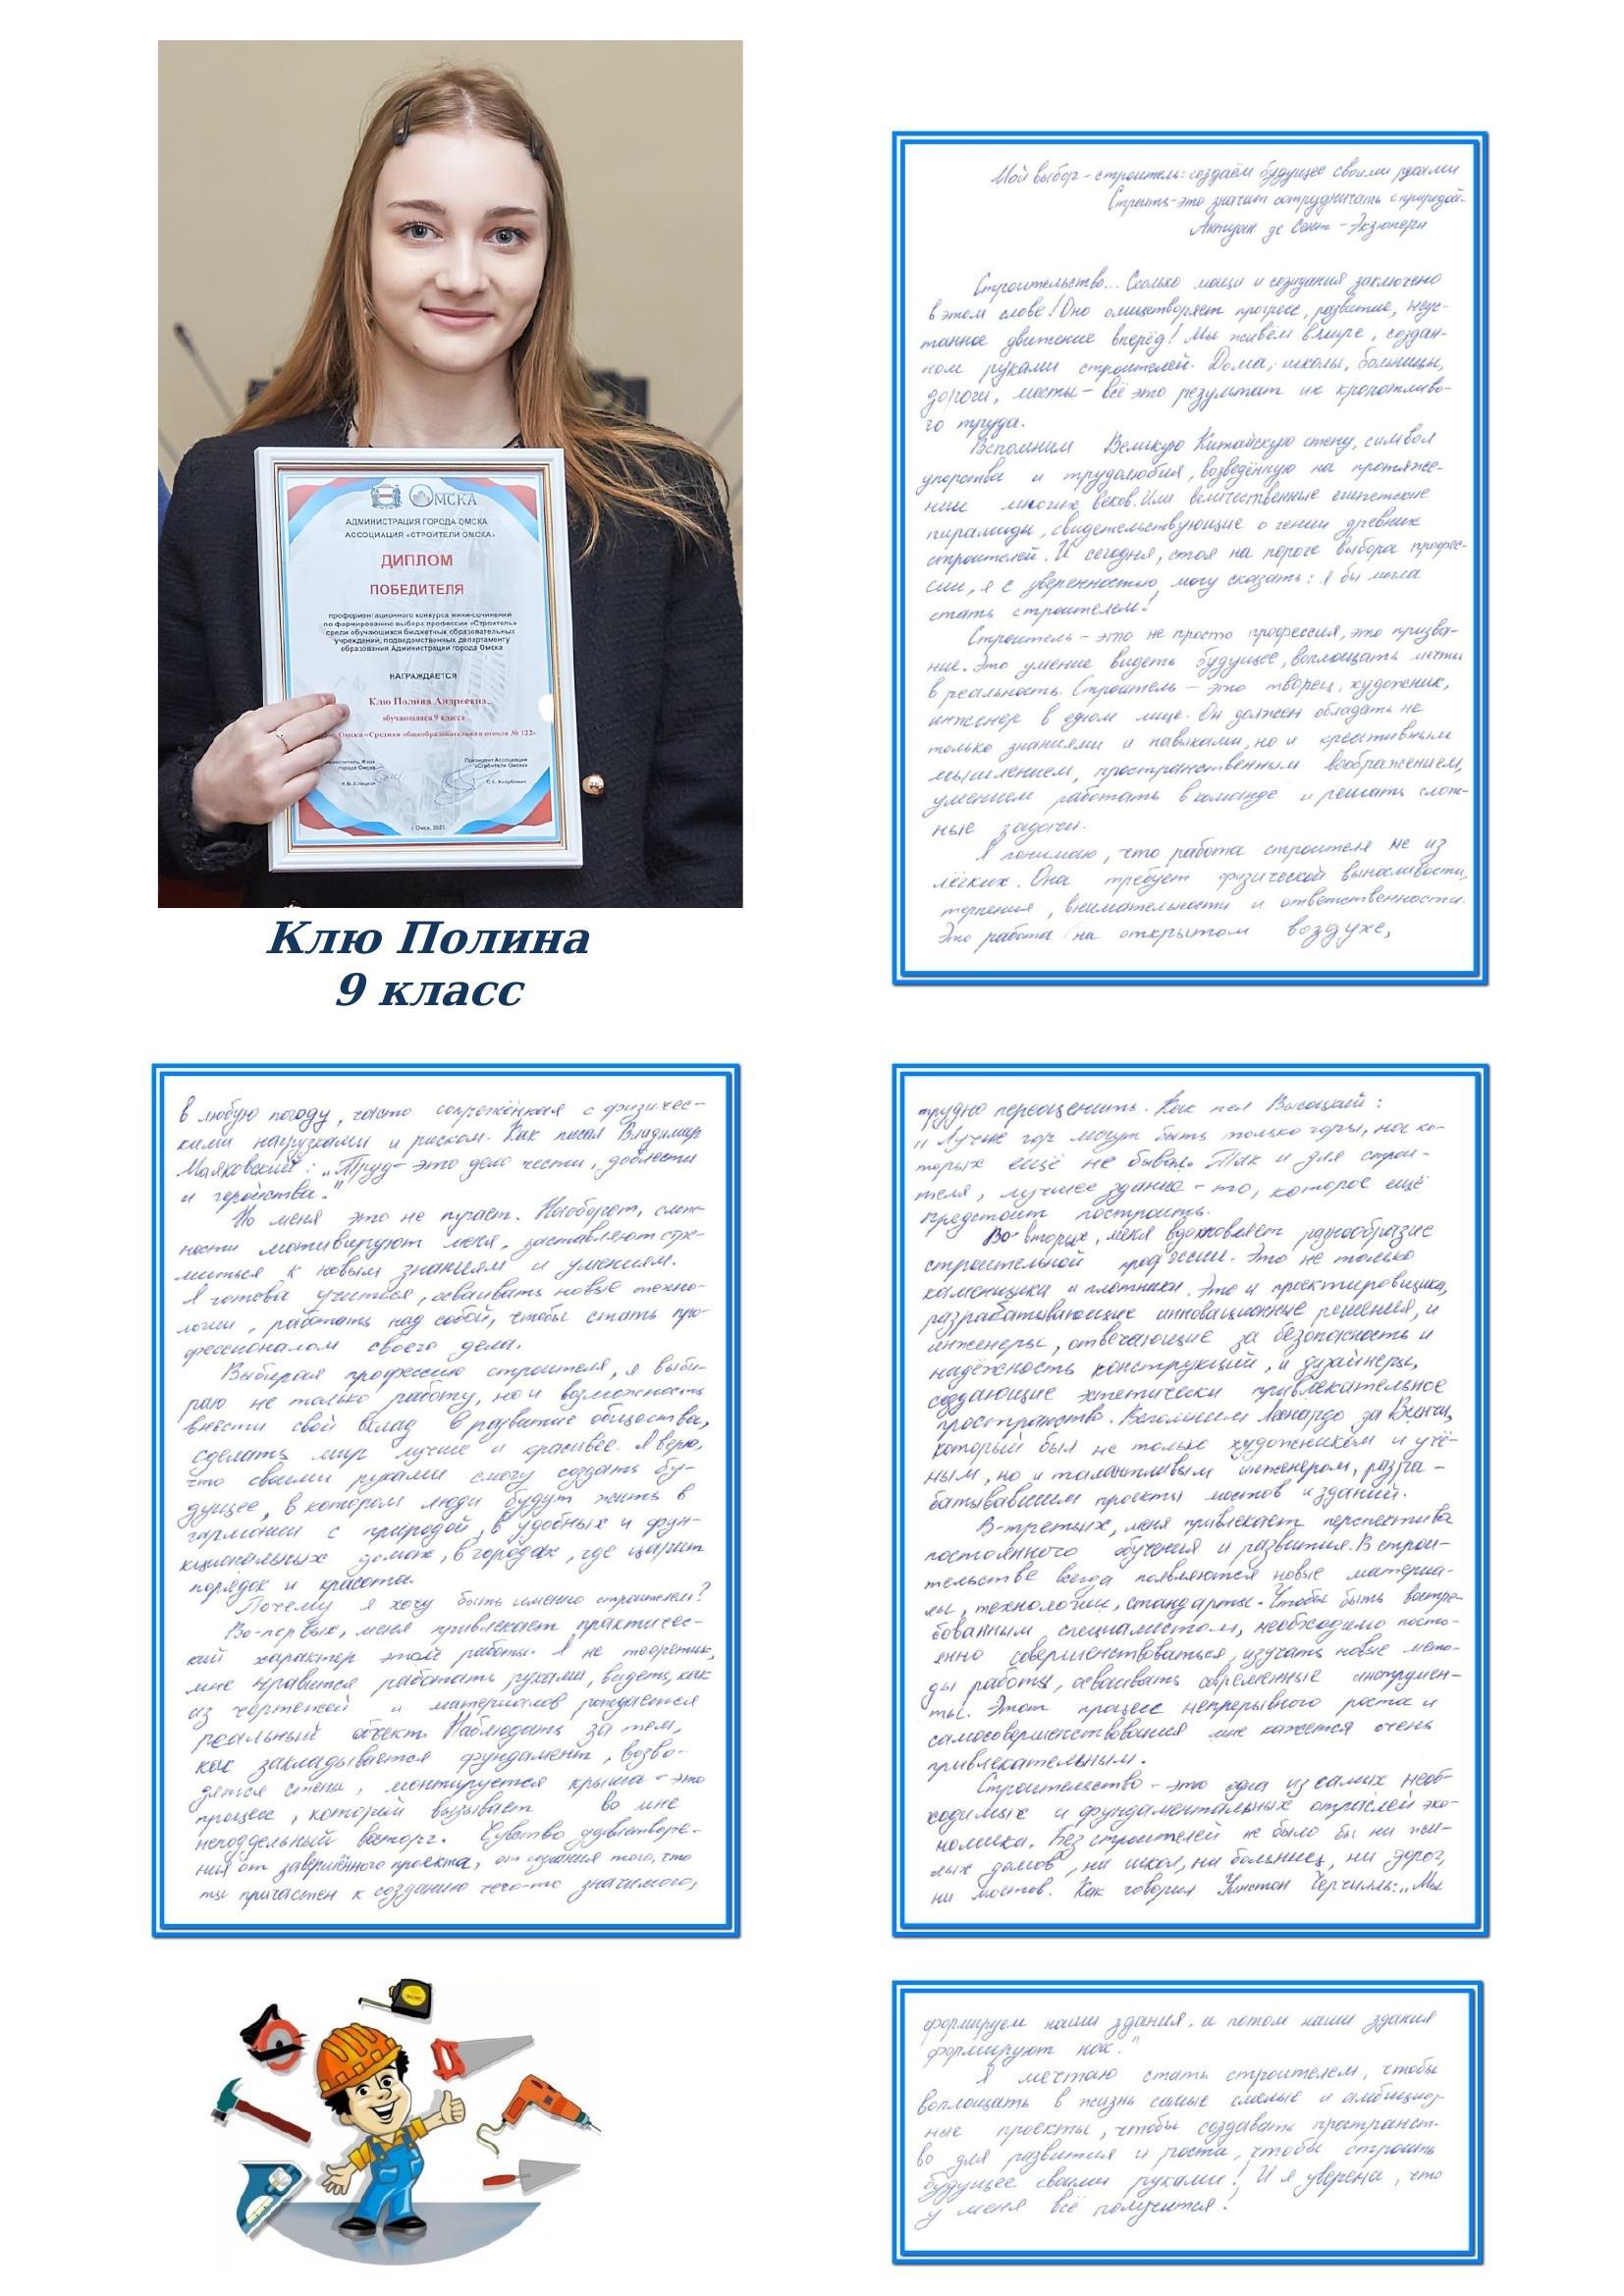 ОМСКА
АДМИНИСТРАЦИЯ ГОРОДА ОМСКА
АССОЦИАЦИЯ «СТРОИТЕЛИ ОМСКА»
ДИПЛОМ
ПОБЕДИТЕЛЯ
профориентационного конкурса мини-сочинений
по формированию выбора профессии «Строитель»
среди обучающихся бюджетных образовательных
учреждений, подведомственных департаменту
образования Администрации города Омска
НАГРАЖДАЕТСЯ
Клю Полина Андреевна,
обучающаяся 9 класса
Омска «Средняя общеобразовательная школа № 122»
города Омска
Президент Ассоциации
«Строители Омска»
г. Омск, 2025
Клю Полина
9 класс
Мой выбор - строитель: создаём будущее своими руками
Строить-это значит сотрудничать с природой.
Антуан де Сент-Экзюпери
Строительство... Сколько мощи и созидания заключено
в этом слове! Оно олицетворяет прогресс, развитие, неус-
танное движение вперёд! Мы живём в мире, создан-
ном руками строителей. Дома, школы, больницы,
дороги, мосты - всё это результат их кропотливо-
го труда.
Вспомним Великую Китайскую стену, символ
упорства и трудолюбия, возведённую на протяже-
нии многих веков. Или величественные египетские
пирамиды, свидетельствующие о гении древних
строителей. И сегодня, стоя на пороге выбора профес-
сии, я с уверенностью могу сказать: я бы могла
стать строителем!
Строитель - это не просто профессия, это призва-
ние. Это умение видеть будущее, воплощать мечты
в реальность. Строитель - это творец, художник,
инженер в одном лице. Он должен обладать не
только знаниями и навыками, но и креативным
мышлением, пространственным воображением,
умением работать в команде и решать слож-
ные задачи.
Я понимаю, что работа строителя не из
лёгких. Она требует физической выносливости,
терпения, внимательности и ответственности.
Это работа на открытом воздухе,
в любую погоду, часто сопряжённая с физичес-
кими нагрузками и риском. Как писал Владимир
Маяковский: „Труд- это дело чести, доблести
и геройства."
Но меня это не пугает. Наоборот, слож-
ности мотивируют меня, заставляют стре-
миться к новым знаниям и умениям.
Я готова учиться, осваивать новые техно-
логии, работать над собой, чтобы стать про-
фессионалом своего дела.
Выбирая профессию строителя, я выби-
раю не только работу, но и возможность
внести свой вклад в развитие общества,
сделать мир лучше и красивее. Я верю,
что своими руками смогу создать бу-
дущее, в котором люди будут жить в
гармонии с природой, в удобных и фун-
кциональных домах, в городах, где царит
порядок и красота.
Почему я хочу быть именно строителем?
Во-первых, меня привлекает практичес-
кий характер этой работы. Я не теоретик,
мне нравится работать руками, видеть, как
из чертежей и материалов рождается
реальный объект. Наблюдать за тем,
как закладывается фундамент, возво-
дятся стены, монтируется крыша - это
процесс, который вызывает во мне
неподдельный восторг. Чувство удовлетворе-
ния от завершённого проекта, от сознания того, что
ты причастен к созданию чего-то значимого,
трудно переоценить. Как пел Высоцкий:
„Лучше гор могут быть только горы, на ко-
торых ещё не бывал. Так и для строи-
теля, лучшее здание - то, которое ещё
предстоит построить.
Во-вторых, меня вдохновляет разнообразие
строительной профессии. Это не только
каменщики и плотники. Это и проектировщики,
разрабатывающие инновационные решения, и
инженеры, отвечающие за безопасность и
надёжность конструкций, и дизайнеры,
создающие эстетически привлекательное
пространство. Вспомним Леонардо да Винчи,
который был не только художником и учё-
ным, но и талантливым инженером, разра-
батывавшим проекты мостов и зданий.
В-третьих, меня привлекает перспектива
постоянного обучения и развития. В строи-
тельстве всегда появляются новые материа-
лы, технологии, стандарты. Чтобы быть востре-
бованным специалистом, необходимо посто-
янно совершенствоваться, изучать новые мето-
ды работы, осваивать современные инструмен-
ты. Этот процесс непрерывного роста и
самосовершенствования мне кажется очень
привлекательным.
Строительство - это одна из самых необ-
ходимых и фундаментальных отраслей эко-
номики. Без строителей не было бы ни жи-
лых домов, ни школ, ни больниц, ни дорог,
ни мостов. Как говорил Уинстон Черчилль: „Мы
формируем наши здания, а потом наши здания
формируют нас."
Я мечтаю стать строителем, чтобы
воплощать в жизнь самые смелые и амбициоз-
ные проекты, чтобы создавать пространст-
во для развития и роста, чтобы строить
будущее своими руками! И я уверена, что
у меня всё получится!